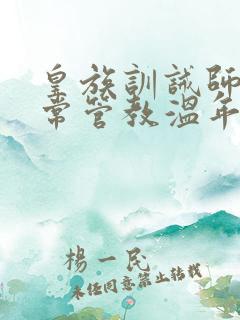 皇族訓誡師
常管教溫年
楊一民
未任同意禁止轉載